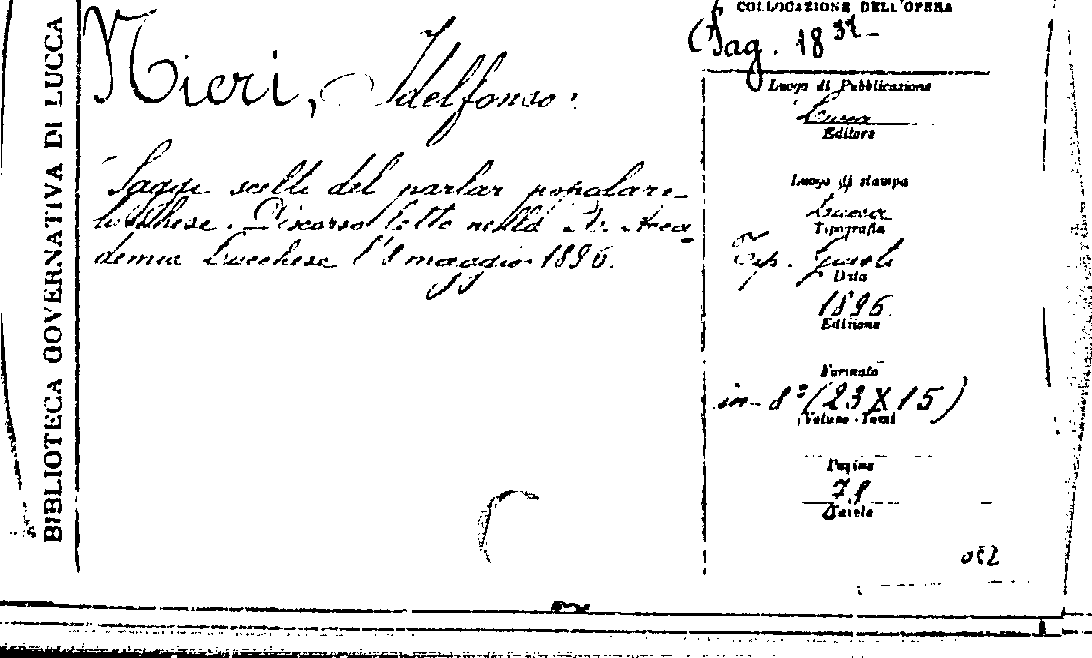 BIBLIOTECA GOVERNATIVA DI LUCCA
Nieri, Idelfonso.
Saggi scelti del parlar popolare
lucchese. Discorso letto nella R. Acca-
demia Lucchese l'8 maggio 1896.
COLLOCAZIONE DELL'OPERA
Luogo di Pubblicazione
Lucca
Editore
Luogo di stampa
Lucca
Tipografia
Tip. Giusti
Data
1896
Edizione
Formato
in-8° (23 X 15)
Volume - Tomi
Pagine
78
Tavole